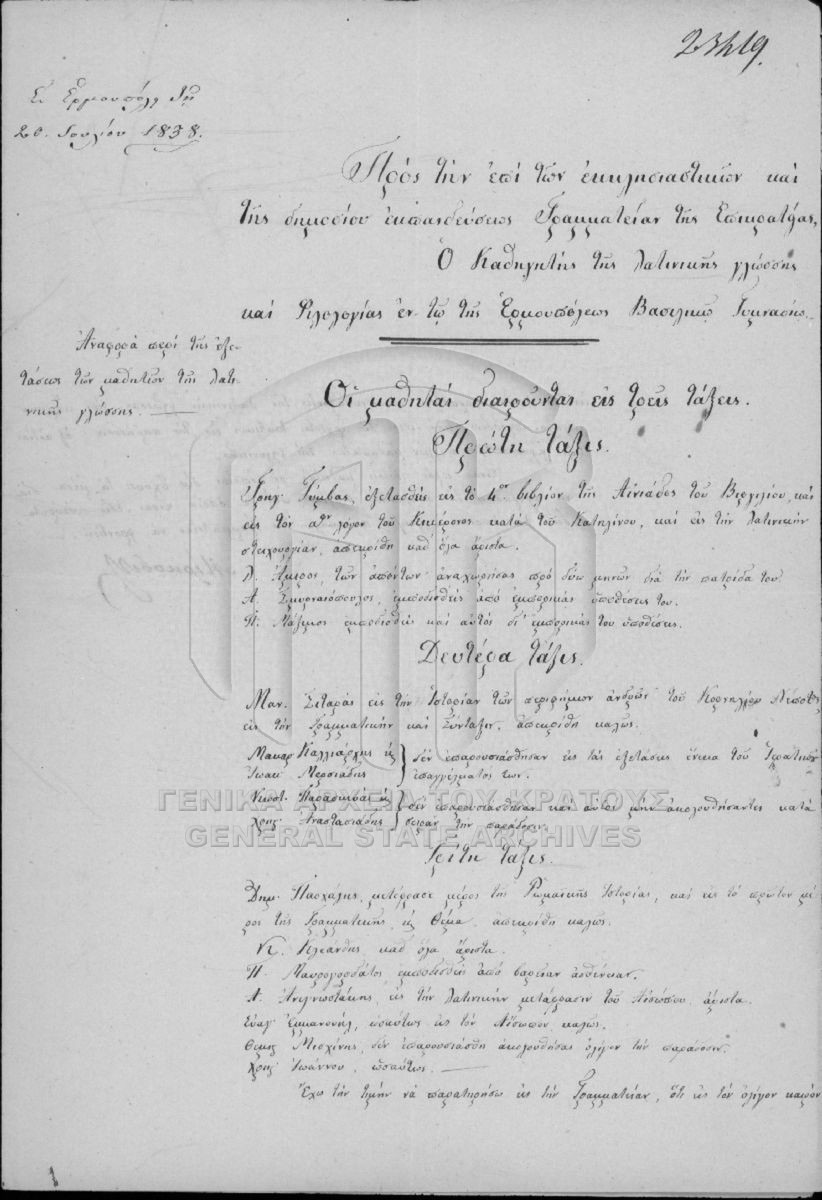 23419.
Ἐν Ἑρμουπόλῃ τῇ
20. Ἰουλίου 1838.
Πρὸς τὴν ἐπὶ τῶν ἐκκλησιαστικῶν καὶ
τῆς δημοσίου ἐκπαιδεύσεως Γραμματείαν τῆς Ἐπικρατείας,
Ὁ Καθηγητὴς τῆς Λατινικῆς γλώσσης
καὶ Φιλολογίας ἐν τῷ τῆς Ἑρμουπόλεως Βασιλικῷ Γυμνασίῳ.
Ἀναφορὰ περὶ τῆς ἐξε-
τάσεως τῶν μαθητῶν τῆς Λατι-
νικῆς γλώσσης.
Οἱ μαθηταὶ διαιροῦνται εἰς τρεῖς τάξεις.
Πρώτη τάξις.
Γρηγ. ἐξετασθεὶς εἰς τὸ 4ον βιβλίον τῆς Αἰνιάδος τοῦ Βιργιλίου, καὶ
εἰς τὸν αον λόγον τοῦ Κικέρονος κατὰ τοῦ Κατηλίνου, καὶ εἰς τὴν Λατινικὴν
στιχουργίαν, ἀπεκρίθη καθ' ὅλα ἄριστα.
Δ. Ἄμιρος, τῶν ἀπόντων ἀναχωρήσας πρὸ δύω μηνῶν διὰ τὴν πατρίδα του.
Α. Σμυρναιόπουλος, ἐμποδισθεὶς ἀπὸ ἐμπορικὰς ὑποθέσεις του.
Π. Μάξιμος ἐμποδισθεὶς καὶ αὐτὸς δι' ἐμπορικάς του ὑποθέσεις.
Δευτέρα τάξις.
Μαν. Σιταρᾶς εἰς τὴν Ἱστορίαν τῶν περιφήμων ἀνδρῶν τοῦ Κορνηλίου Νέποτος
εἰς τὴν Γραμματικὴν καὶ Σύνταξιν, ἀπεκρίθη καλῶς.
Μακαρ Καλλιάρχης κ
Ἰωακ Μερσιάδης } δὲν ἐπαρουσιάσθησαν εἰς τὰς ἐξετάσεις ἕνεκα τοῦ Ἱερατικοῦ
ἐπαγγέλματός των.
Κωνστ. κ
Χρης Ἀναστασιάδης } δὲν ἐπαρουσιάσθησαν καὶ αὐτοὶ μὴν ἀκολουθήσαντες κατὰ
σειρὰν τὴν παράδοσιν.
ΓΕΝΙΚΑ ΑΡΧΕΙΑ ΤΟΥ ΚΡΑΤΟΥΣ
GENERAL STATE ARCHIVES
Τρίτη τάξις.
Δημ. Πασχάλης, μετέφρασε μέρος τῆς Ῥωμαϊκῆς Ἱστορίας, καὶ εἰς τὸ πρῶτον μέ-
ρος τῆς Γραμματικῆς, κ θέμα, ἀπεκρίθη καλῶς.
Ν. Κλεάνθης, καθ' ὅλα ἄριστα.
Π. Μαυρογορδᾶτος ἐμποδισθεὶς ἀπὸ βαρεῖαν ἀσθένειαν.
Α. Ἀναγνωστάκης, εἰς τὴν Λατινικὴν μετάφρασιν τοῦ Αἰσώπου, ἄριστα.
Εὐαγ Ἐμμανουήλ, ὡσαύτως εἰς τὸν Αἴσωπον, καλῶς.
Θεμισ Μισχίνης, δὲν ἐπαρουσιάσθη ἀκολουθήσας ὀλίγον τὴν παράδοσιν.
Χρης Ἰωάννου, ὡσαύτως.
Ἔχω τὴν τιμὴν νὰ παρατηρήσω εἰς τὴν Γραμματείαν, ὅτι εἰς τὸν ὀλίγον καιρὸν